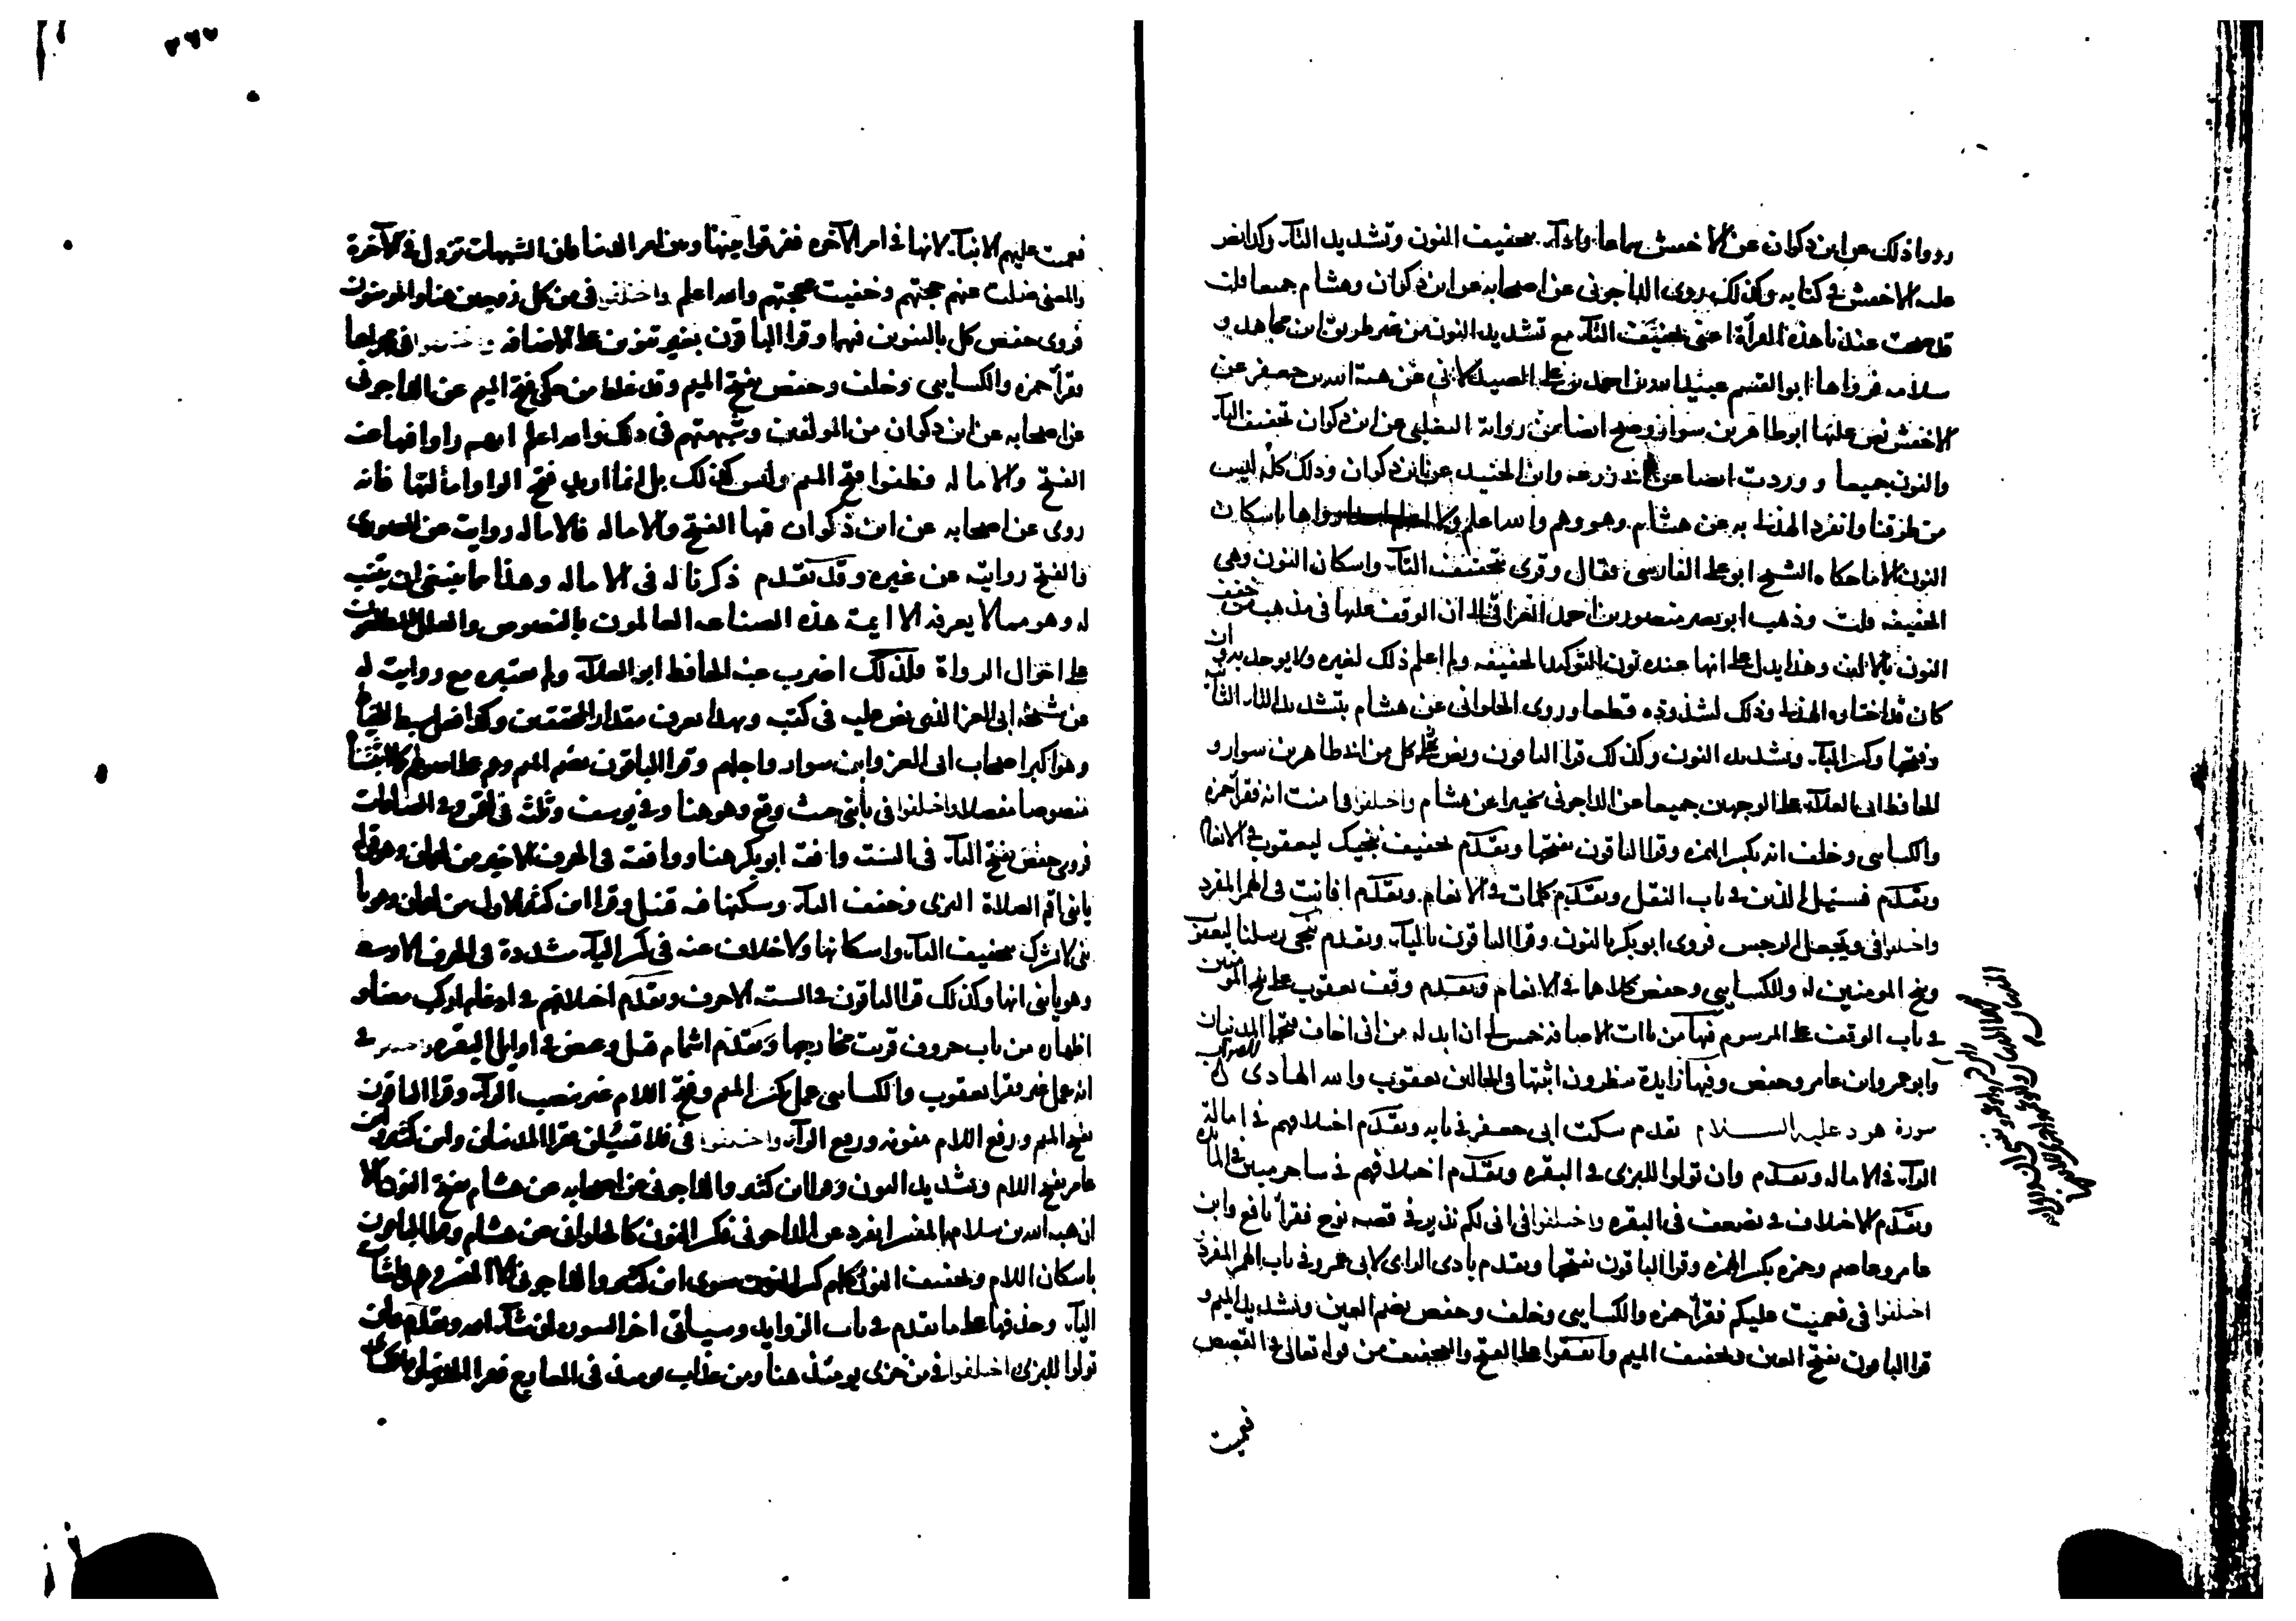 رووا ذلك عن ابن ذكوان عن الاخفش سماعا واداء بتخفيف النون وتشديد التاء وكذا نص
عليه الاخفش في كتابه وكذلك روى الداجوني عن اصحابه عن ابن ذكوان وهشام جميعا قلت
قد صحت عندنا هذه القراة اعني تخفيف التاء مع تشديد النون من غير طريق ابن مجاهد و
سلامه فرواها ابو القسم عبيد الله بن احمد بن علي الصيدلاني عن هبة الله بن جعفر عن
الاخفش نص عليها ابو طاهر بن سوار وصح ايضا من رواية التغلبي عن ابن ذكوان تخفيف التاء
والنون جميعا و وردت ايضا عن ابي زرعه وابن الجنيد عن ابن ذكوان وذلك كله ليس
من طرقنا وانفرد الهذلي به عن هشام وهو وهم والله اعلم ولا اعلم احدا رواها باسكان
النون الا ما حكاه الشيخ ابو علي الفارسي فقال وقرى بتخفيف التاء واسكان النون وهي
الخفيفه قلت وذهب ابو نصر منصور بن احمد العراقي الى ان الوقف عليها في مذهب من خفف
النون بالالف وهذا يدل على انها عنده نون التوكيد الخفيفه ولم اعلم ذلك لغيره ولا يوخذ به وان
كان قد اختاره الهذلي وذلك لشذوذه قطعا وروى الحلواني عن هشام بتشديد التاء الثانية
وفتحها وكسر الباء وتشديد النون وكذلك قرا الباقون ونص على كل من ابي طاهر بن سوار و
الحافظ ابي العلاء على الوجهين جميعا عن الداجوني تخييرا عن هشام واختلفوا في امنت انه فقرا حمزه
والكسايي وخلف انه بكسر الهمزه وقرا الباقون بفتحها وتقدم تخفيف ننجيك ليعقوب في الانعام
وتقدم فسئل الذين في باب النقل وتقدم كلمات في الانعام وتقدم افانت في الهمز المفرد
واختلفوا في ويجعل الرجس فروى ابو بكر بالنون وقرا الباقون بالياء وتقدم ننجي رسلنا ليعقوب
وننج المومنين له وللكسايي وحفص كلاهما في الانعام وتقدم وقف يعقوب على ننج المومنين
في باب الوقف على المرسوم فيها من ياات الاضافة خمس لي ان ابدله من اني اخاف فتحها المدنيان
وابو عمرو وابن عامر وحفص وفيها زايدة تنظرون اثبتها في الحالين يعقوب والله الهادى للصواب
سورة هود عليه السلام تقدم سكت ابي جعفر في بابه وتقدم اختلافهم في امالة
الراء في الاماله وتقدم وان تولوا للبزى في البقره وتقدم اختلافهم في ساحر مبين في المايده
وتقدم الاختلاف في يضعف في البقره واختلفوا في اني لكم نذير في قصه نوح فقرا نافع وابن
عامر وعاصم وحمزه بكسر الهمزه وقرا الباقون بفتحها وتقدم بادى الراى لابي عمرو في باب الهمز المفرد
اختلفوا في فعميت عليكم فقرا حمزه والكسايي وخلف وحفص بضم العين وتشديد الميم و
قرا الباقون بفتح العين وتخفيف الميم واتفقوا على الفتح والتخفيف من قوله تعالى في القصص
فعميت
٣٦٧
فعميت عليهم الانباء لانها في امر الآخره ففرقوا بينها وبين امر الدنيا فان الشبهات تزول في الآخرة
والمعنى ضلت عنهم حجتهم وخفيت محجتهم والله اعلم واختلفوا في من كل زوجين هنا والمومنون
فروى حفص كل بالتنوين فيهما وقرا الباقون بغير تنوين على الاضافه واختلفوا في مجراها
فقرا حمزه والكسايي وخلف وحفص بفتح الميم وقد غلط من حكى فتح الميم عن الداجوني
عن اصحابه عن ابن ذكوان من المولفين وشبهتهم في ذلك والله اعلم انهم راوا فيها عنه
الفتح والاماله فظنوا فتح الميم وليس كذلك بل انما اريد فتح الراء وامالتها فانه
روى عن اصحابه عن ابن ذكوان فيها الفتح والاماله فالاماله روايته عن الصورى
والفتح روايته عن غيره وقد تقدم ذكرنا له في الاماله وهذا مما ينبغي ان يتنبه
له وهو مما لا يعرفه الا ايمة هذه الصناعه العالمون بالنصوص والعلل المطلعون
على احوال الرواة فلذلك اضرب عنه الحافظ ابو العلاء ولم يعتبره مع روايته له
عن شيخه ابي العز الذي نص عليه في كتبه وبهذا يعرف مقدار المحققين وكذا فعل سبط الخياط
وهو اكبر اصحاب ابي العز وابن سوار واجلهم وقرا الباقون بضم الميم وهم على اصولهم كما تقدم
منصوصا مفصلا واختلفوا في يابني حيث وقع وهو هنا وفي يوسف وثلثة في لقمن وفي الصافات
فروى حفص بفتح الياء في الستة وافقه ابو بكر هنا ووافقه في الحرف الاخير من لقمان وهو قوله
يابني اقم الصلاة البزى وخفف الياء وسكنها فيه قنبل وقرا ابن كثير الاول من لقمان وهو يا
بني لا تشرك بتخفيف الياء واسكانها ولا خلاف عنه في كسر الياء مشددة في الحرف الاوسط
وهو يابني انها وكذلك قرا الباقون في الستة الاحرف وتقدم اختلافهم في ادغام اركب معنا و
اظهاره من باب حروف قربت مخارجها وتقدم اشمام قيل وغيض في اوايل البقره واختلفوا في
انه عمل غير فقرا يعقوب والكسايي عمل بكسر الميم وفتح اللام غير بنصب الراء وقرا الباقون
بفتح الميم ورفع اللام منونه ورفع الراء واختلفوا في فلا تسئلن فقرا المدنيان وابن كثير وابن
عامر بفتح اللام وتشديد النون وقرا ابن كثير والداجوني عن اصحابه عن هشام بفتح النون الا
ان هبة الله بن سلامه المفسر انفرد عن الداجوني فكسر النون كالحلواني عن هشام وقرا الباقون
باسكان اللام وتخفيف النون وكلهم كسر النون سوى ابن كثير والداجوني الا المفسر وهم في اثبات
الياء وحذفها على ما تقدم في باب الزوايد وسياتي اخر السوره ان شاء الله وتقدم فان
تولوا للبزى واختلفوا في من خزى يومئذ هنا ومن عذاب يومئذ في المعارج فقرا المدنيان والكسايي